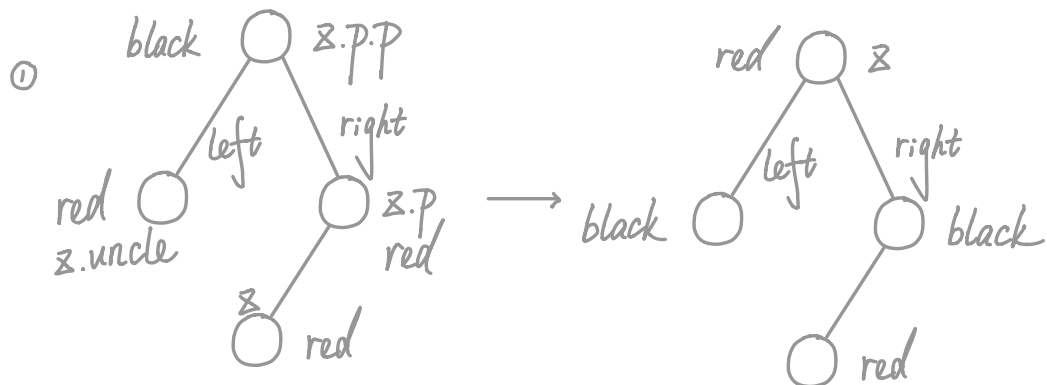 ①
black z.p.p
left right
red z.p
z.uncle red
z
red
red z
left right
black black
red